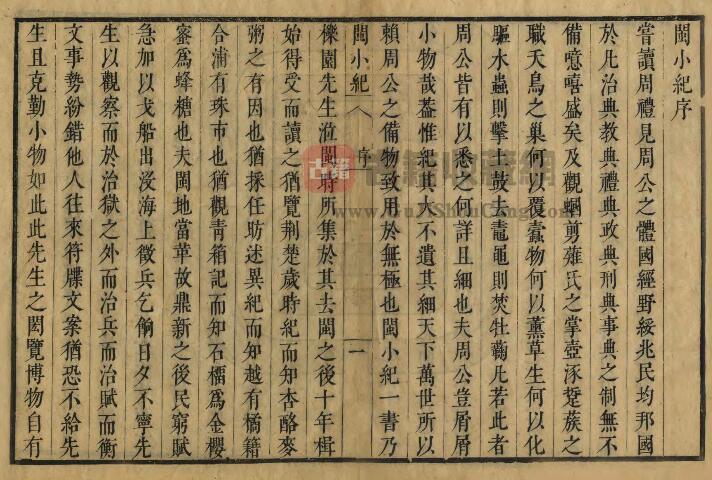 閩小紀序
嘗讀周禮見周公之體國經野綏兆民均邦國
於凡治典教典禮典政典刑典事典之制無不
備噫嘻盛矣及觀蟈剪薙氏之掌壺涿硩蔟之
職夭鳥之巢何以覆蠹物何以薰草生何以化
驅水蟲則擊土鼓去鼃黽則焚牡蘜凡若此者
周公皆有以悉之何詳且細也夫周公豈屑屑
小物哉葢惟紀其大不遺其細天下萬世所以
賴周公之備物致用於無極也閩小紀一書乃
閩小紀 序 一
櫟園先生涖閩時所集於其去閩之後十年楫
始得受而讀之猶覽荆楚歲時紀而知杏酪麥
粥之有因也猶採任昉述異紀而知越有橘籍
合浦有珠市也猶觀青箱記而知石橊爲金櫻
蜜爲蜂糖也夫閩地當革故鼎新之後民窮賦
急加以戈船出没海上徵兵乞餉日夕不寧先
生以觀察而於治獄之外而治兵而治賦而衡
文事勢紛錯他人往來符牒文案猶恐不給先
生且克勤小物如此此先生之閎覽博物自有
www.GuJiShouCang.com